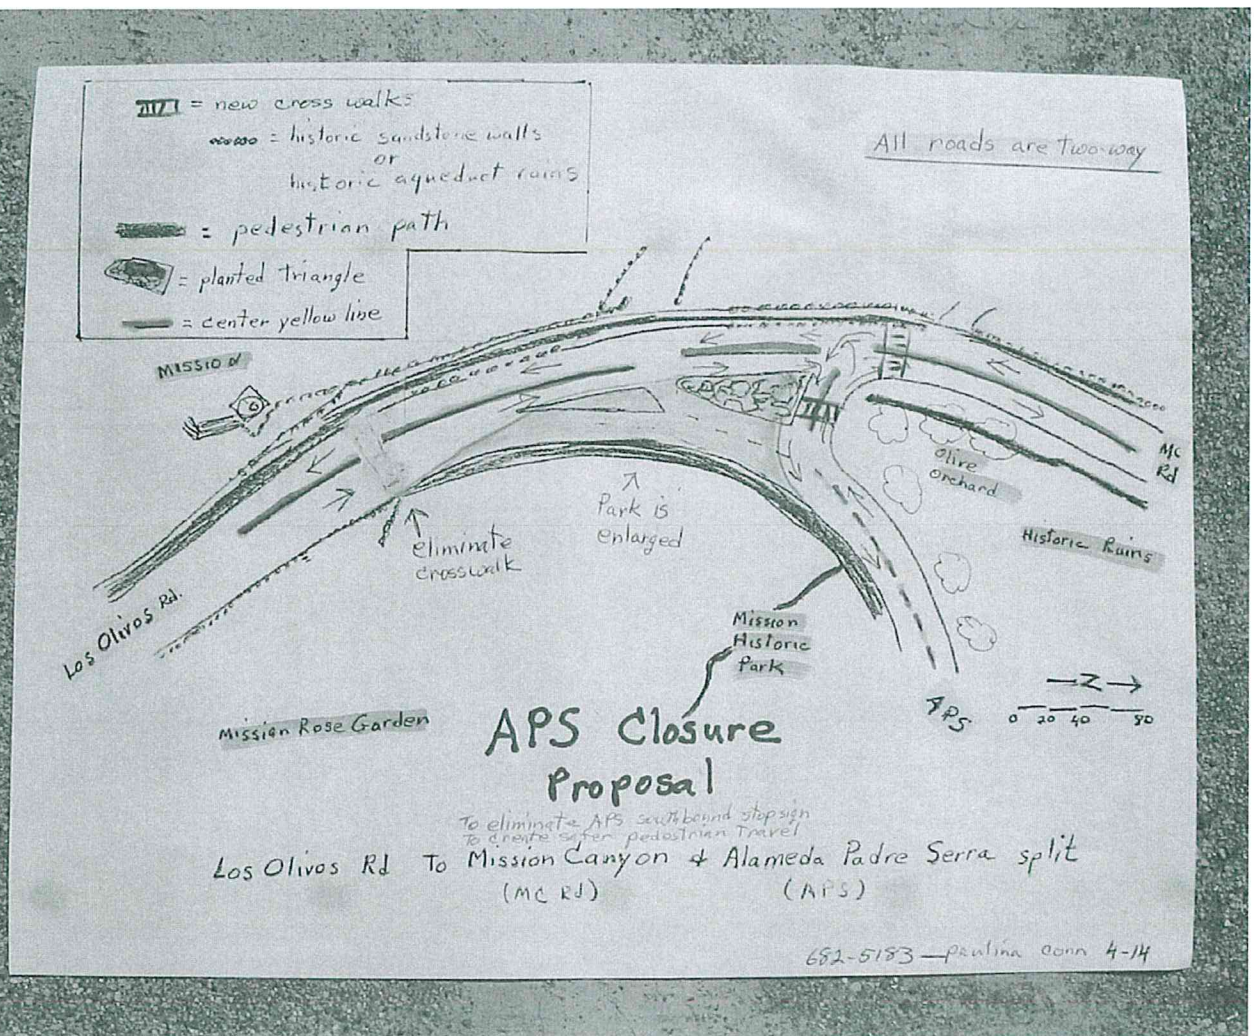 = new cross walks
= historic sandstone walls
or
historic aqueduct ruins
= pedestrian path
= planted triangle
= center yellow line
All roads are Two-way
MISSION
MC
Rd
Olive
Orchard
Historic Ruins
Park is
enlarged
eliminate
crosswalk
Los Olivos Rd.
Mission
Historic
Park
Mission Rose Garden
APS
N
0 20 40 80
APS Closure
Proposal
To eliminate APS southbound stop sign
To create safer pedestrian Travel
Los Olivos Rd To Mission Canyon & Alameda Padre Serra split
(MC Rd) (APS)
682-5183 — paulina conn 4-14